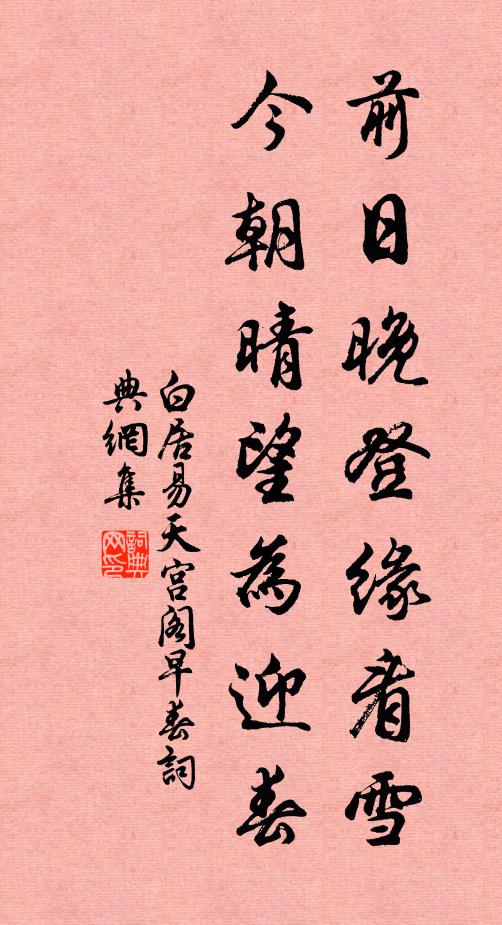 前日晚登缘看雪
今朝晴望為迎春
白居易天宫阁早春詞
典網集
詞典网印